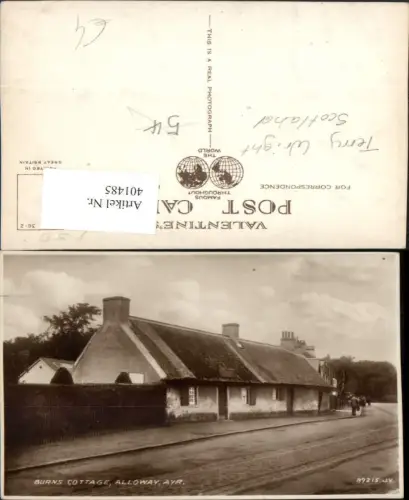 64
THIS IS A REAL PHOTOGRAPH
54
Terry Wright
Scotland
FAMOUS
THROUGHOUT
THE
WORLD
GREAT BRITAIN
FOR CORRESPONDENCE
Artikel Nr.
401485
VALENTINE'S
POST CA
36-2
BURNS COTTAGE, ALLOWAY, AYR.
A9215. JV.